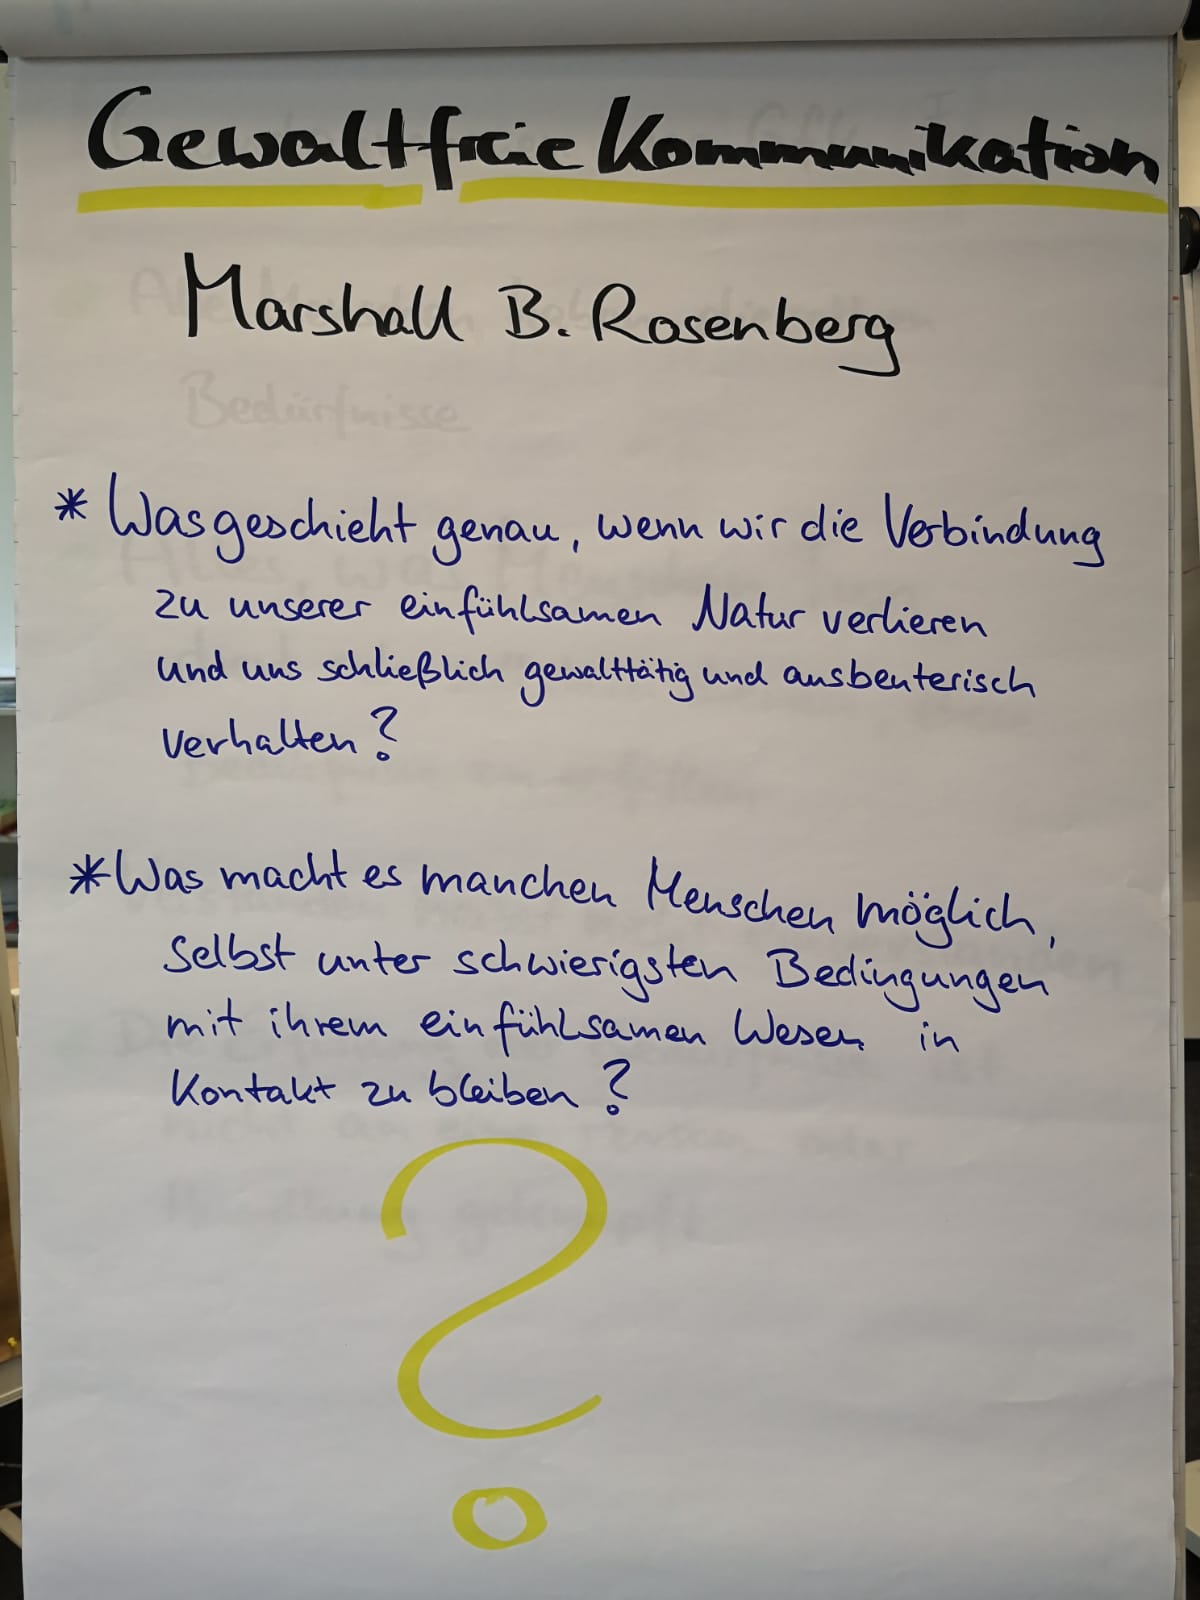 Gewaltfreie Kommunikation
Marshall B. Rosenberg
Bedürfnisse
* Was geschieht genau, wenn wir die Verbindung
zu unserer einfühlsamen Natur verlieren
und uns schließlich gewalttätig und ausbeuterisch
verhalten?
* Was macht es manchen Menschen möglich,
selbst unter schwierigsten Bedingungen
mit ihrem einfühlsamen Wesen in
Kontakt zu bleiben?
?